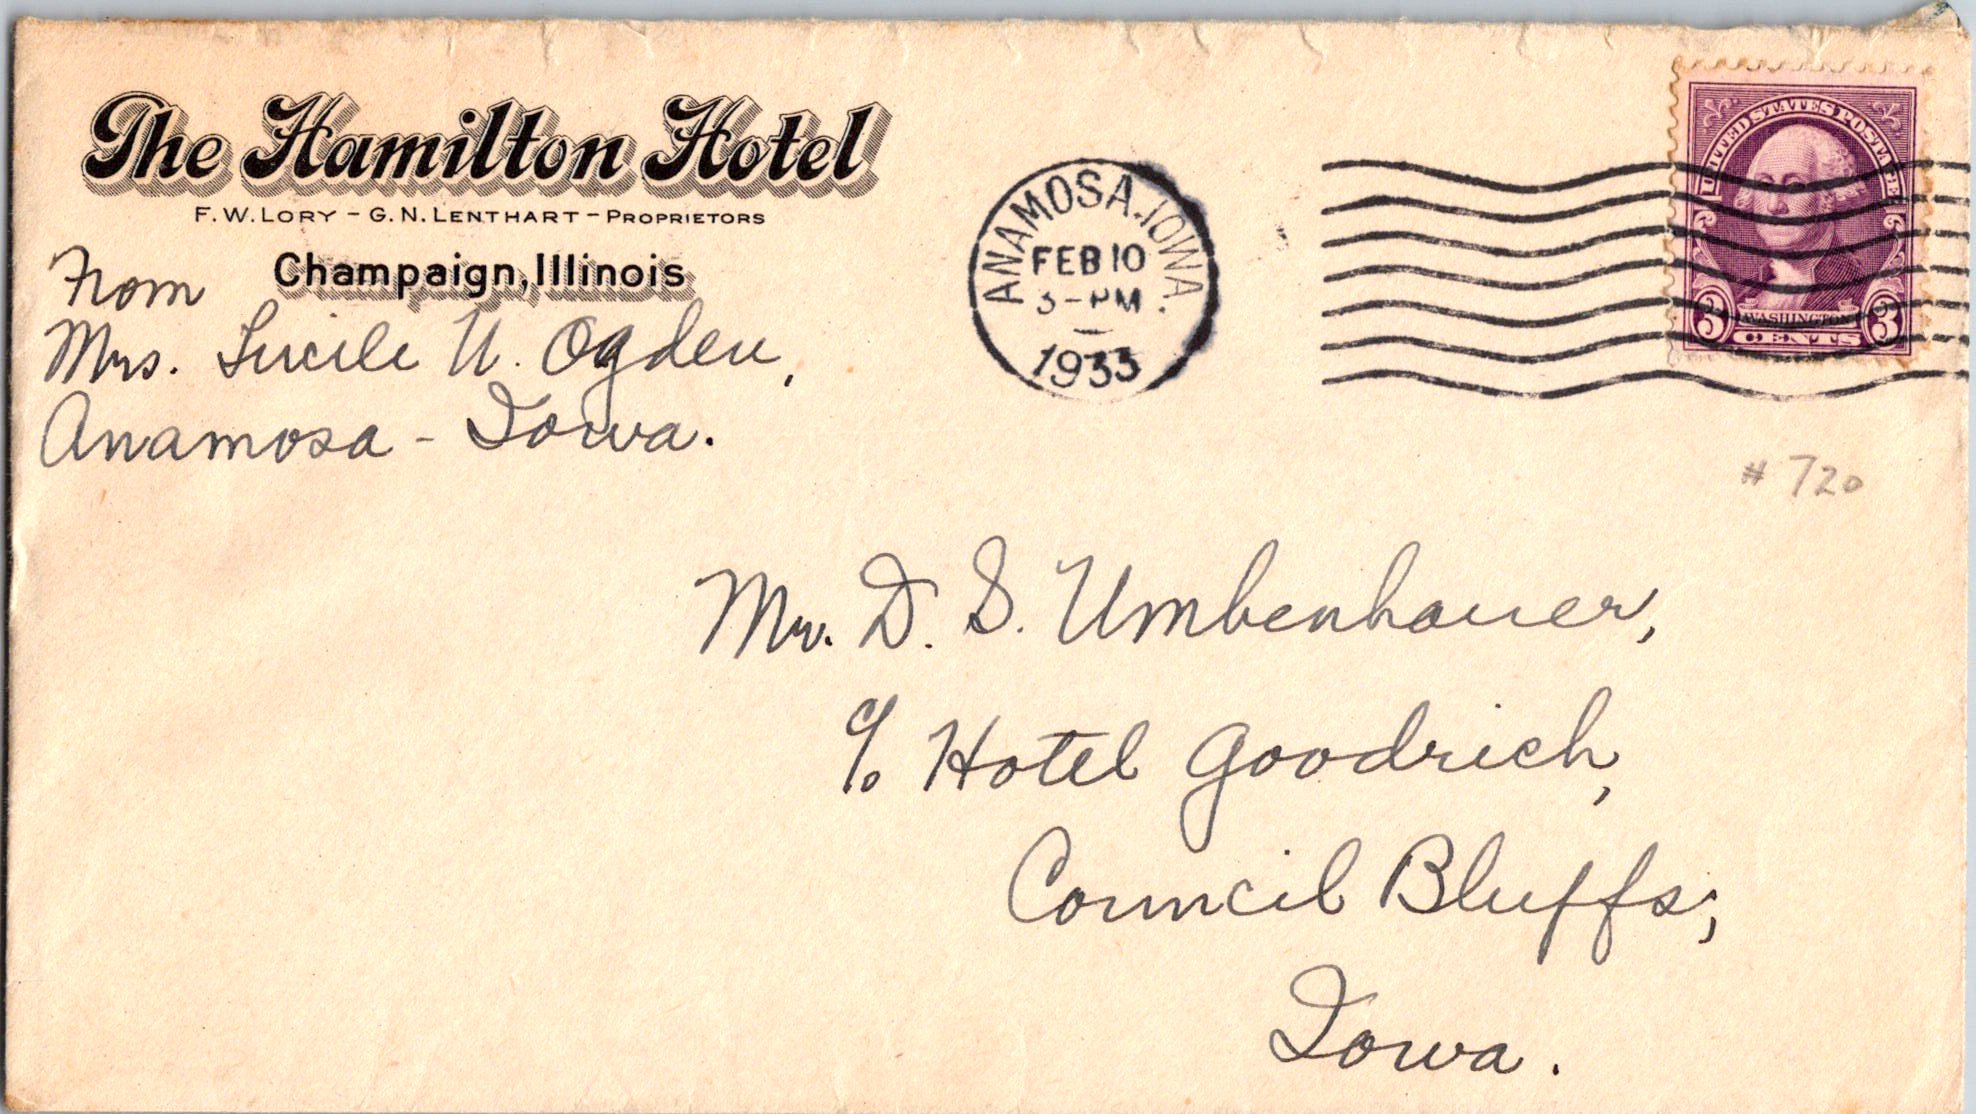 The Hamilton Hotel
F. W. LORY – G. N. LENTHART – PROPRIETORS
Champaign, Illinois
From
Mrs. Lucile U. Ogden,
Anamosa - Iowa.
ANAMOSA. IOWA.
FEB 10
3 - PM
1933
UNITED STATES POSTAGE
3 WASHINGTON 3
CENTS
# 720
Mr. D. S. Umbenhauer,
c/o Hotel Goodrich,
Council Bluffs,
Iowa.